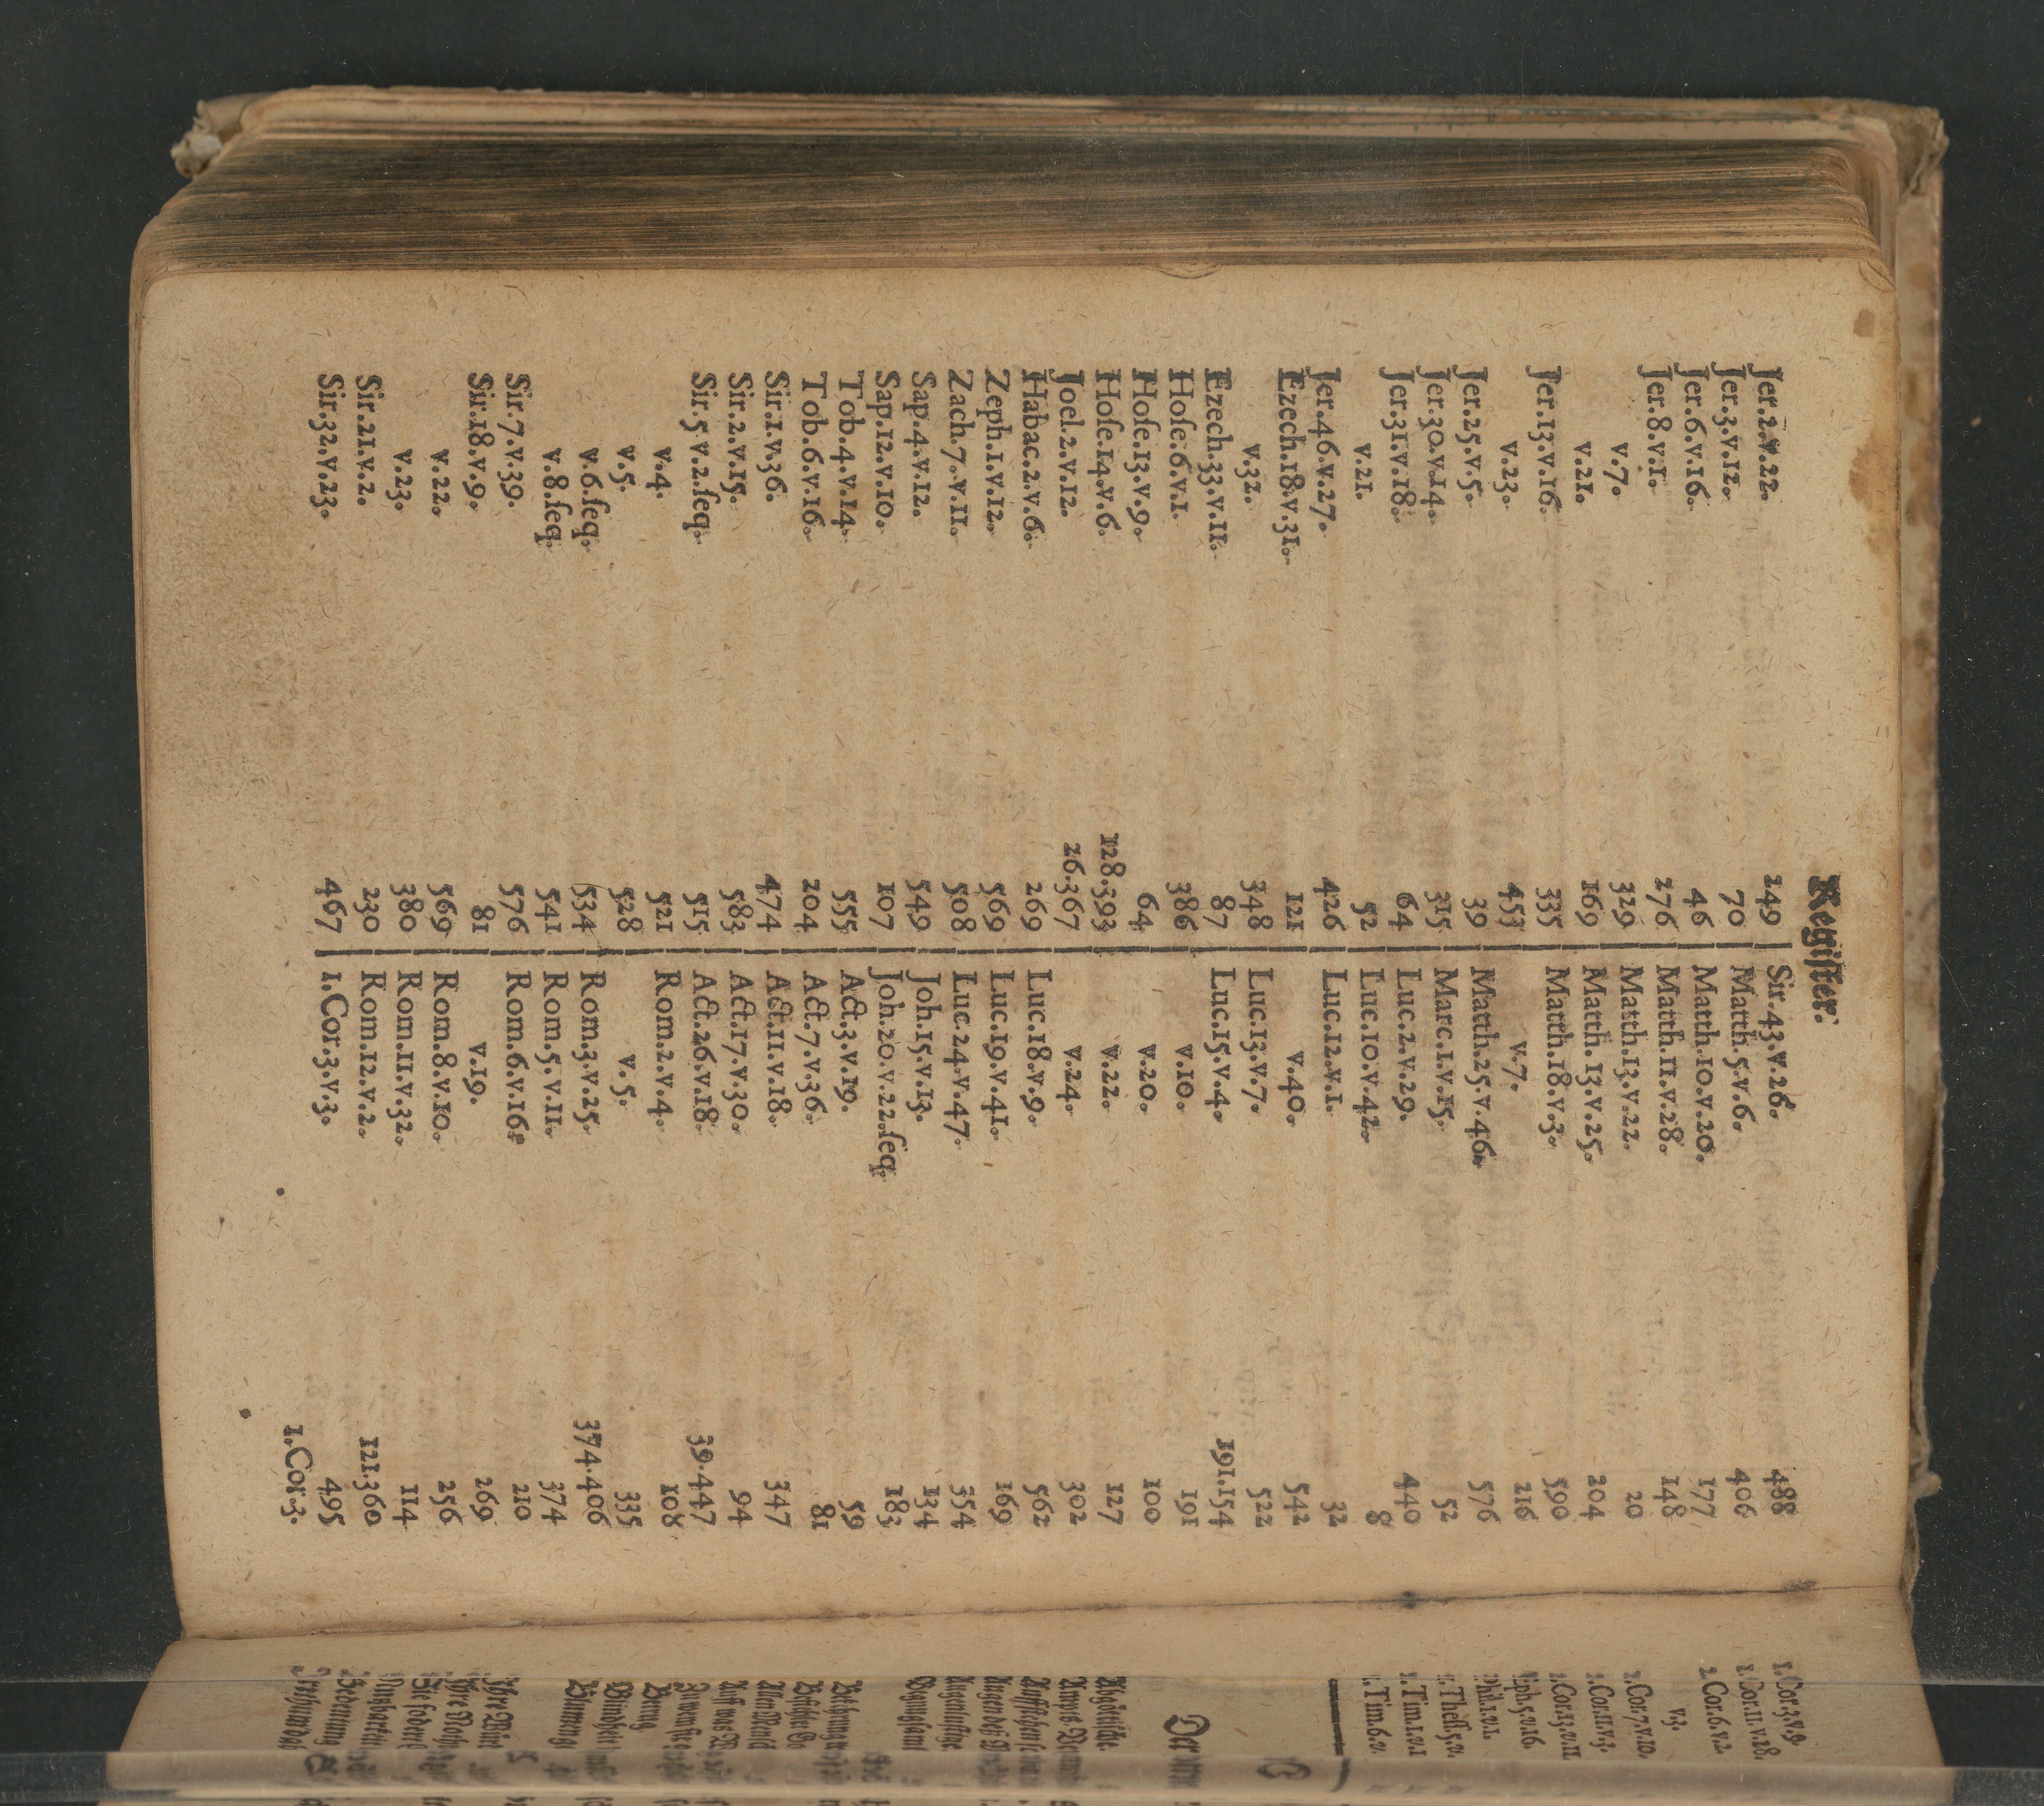 Register.
Jer.2.v.22. 149
Jer.3.v.12. 70
Jer.6.v.16. 46
Jer.8.v.1. 276
v.7. 329
v.21. 169
Jer.13.v.16. 335
v.23. 453
Jer.25.v.5. 39
Jer.30.v.14. 315
Jer.31.v.18. 64
v.21. 52
Jer.46.v.27. 426
Ezech.18.v.31. 121
v.32. 348
Ezech.33.v.11. 87
Hoſe.6.v.1. 386
Hoſe.13.v.9. 64
Hoſe.14.v.6. 128.593
Joel.2.v.12. 26.367
Habac.2.v.6. 269
Zeph.1.v.12. 569
Zach.7.v.11. 508
Sap.4.v.12. 549
Sap.12.v.10. 107
Tob.4.v.14. 555
Tob.6.v.16. 204
Sir.1.v.36. 474
Sir.2.v.15. 583
Sir.5.v.2.ſeq. 515
v.4. 521
v.5. 528
v.6.ſeq. 534
v.8.ſeq. 541
Sir.7.v.39. 576
Sir.18.v.9. 81
v.22. 569
v.23. 380
Sir.21.v.2. 230
Sir.32.v.23. 467
Sir.43.v.26. 488
Matth.5.v.6. 406
Matth.10.v.20. 177
Matth.11.v.28. 148
Matth.13.v.22. 20
Matth.13.v.25. 204
Matth.18.v.3. 590
v.7. 216
Matth.25.v.46. 576
Marc.1.v.15. 52
Luc.2.v.29. 440
Luc.10.v.42. 8
Luc.12.v.1. 32
v.40. 542
Luc.13.v.7. 522
Luc.15.v.4. 191.154
v.10. 191
v.20. 100
v.22. 127
v.24. 302
Luc.18.v.9. 562
Luc.19.v.41. 169
Luc.24.v.47. 354
Joh.15.v.13. 134
Joh.20.v.22.ſeq. 183
Act.3.v.19. 59
Act.7.v.36. 81
Act.11.v.18. 347
Act.17.v.30. 94
Act.26.v.18. 39.447
Rom.2.v.4. 108
v.5. 335
Rom.3.v.25. 374.406
Rom.5.v.11. 374
Rom.6.v.16. 210
v.19. 269
Rom.8.v.10. 256
Rom.11.v.32. 114
Rom.12.v.2. 121.360
1.Cor.3.v.3. 495
1.Cor.3.
1.Cor.3.v.9.
1.Cor.11.v.28.
2.Cor.6.v.2
v.3.
2.Cor.7.v.10.
2.Cor.11.v.3.
2.Cor.13.v.11
Der